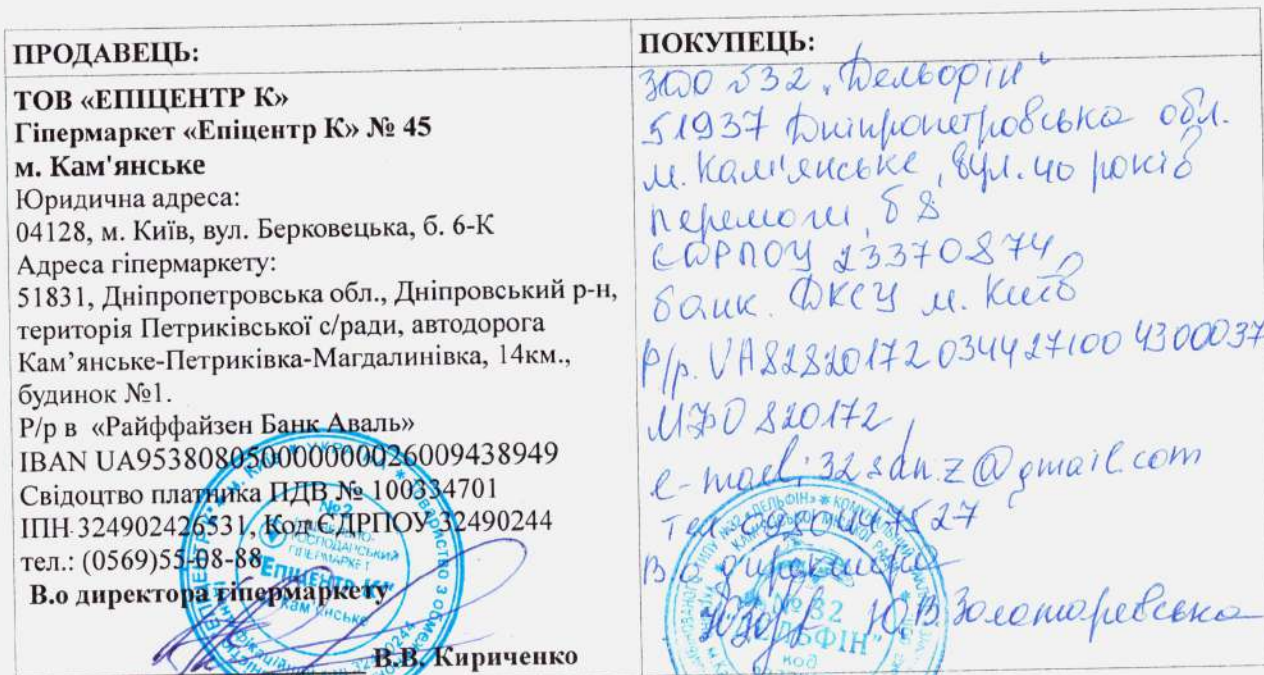 ПРОДАВЕЦЬ:
ТОВ «ЕПІЦЕНТР К»
Гіпермаркет «Епіцентр К» № 45
м. Кам'янське
Юридична адреса:
04128, м. Київ, вул. Берковецька, б. 6-К
Адреса гіпермаркету:
51831, Дніпропетровська обл., Дніпровський р-н,
територія Петриківської с/ради, автодорога
Кам’янське-Петриківка-Магдалинівка, 14км.,
будинок №1.
Р/р в «Райффайзен Банк Аваль»
IBAN UA953808050000000026009438949
Свідоцтво платника ПДВ № 100334701
ІПН 324902426531, Код ЄДРПОУ 32490244
тел.: (0569)55-08-88
В.о директора гіпермаркету
В.В. Кириченко
ПОКУПЕЦЬ:
ЗДО №32 „Дельфін"
51937 Дніпропетровська обл.
м. Кам'янське, вул. 40 років
перемоги, б 8
ЄДРПОУ 23370874,
банк. ДКСУ м. Київ
Р/р. UA828201720344271004300037
МФО 820172
e-mail: 32sdn.z@gmail.com
Тел
В.о директора
Ю.В. Золотаревська
№2
ГІПЕРМАРКЕТ
"ЕПІЦЕНТР К"
Кам'янське
№ 32
"ДЕЛЬФІН"
код